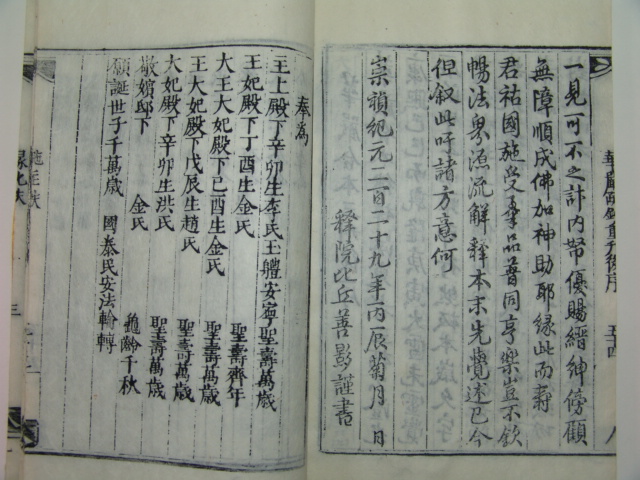 一見可不之計內帑優賜縉紳傍顧
無障順成佛加神助耶緣此而壽
君祐國施受羣品普同亨樂豈不欽
暢法界源流解釋本末先覺述已今
但叙此吁諸方意何
崇禎紀元二百二十九年丙辰菊月 日
釋院比丘善影謹書
奉爲
主上殿下辛卯生李氏玉體安寧聖壽萬歲
王妃殿下丁酉生金氏 聖壽齊年
大王大妃殿下己酉生金氏 聖壽萬歲
王大妃殿下戊辰生趙氏 聖壽萬歲
大妃殿下辛卯生洪氏 聖壽萬歲
敬嬪邸下 金氏 龜齡千秋
願誕世子千萬歲 國泰民安法輪轉
施主秩